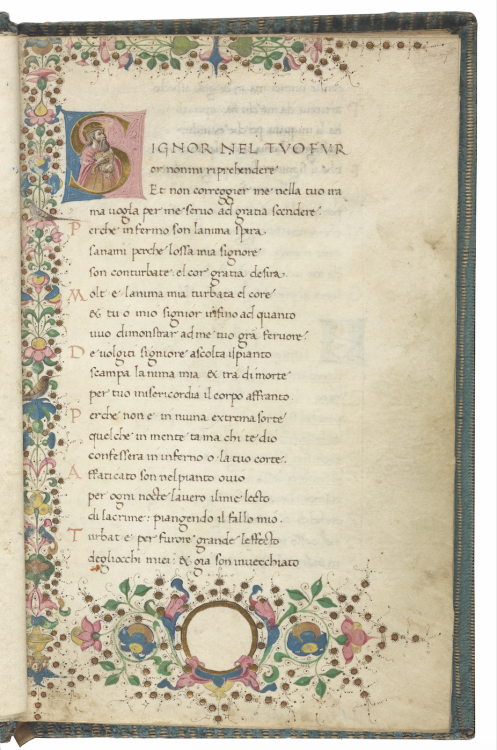 SIGNOR NEL TVO FVR
or nonmi riprehendere
Et non corregier me nella tuo ira
ma uogla per me seruo ad gratia scendere.
Perche infermo son lanima spira
sanami perche lossa mia signore
son conturbate el cor gratia desira.
Molt e lanima mia turbata el core
& tu o mio signior infino ad quanto
uuo dimonstrar ad me tuo gra feruore
De uolgiti signiore ascolta il pianto
scampa la nima mia & tra di morte
per tuo misericordia il corpo affranto
Perche non e in niuna extrema sorte
quel che in mente ta ma chi te dio
confessera in inferno o la tuo corte.
Affaticato son nel pianto ouio
per ogni nocte lauero il mie lecto
di lacrime: piangendo il fallo mio.
Turbat e per furore grande leffecto
degliocchi miei: & gia son inuecchiato